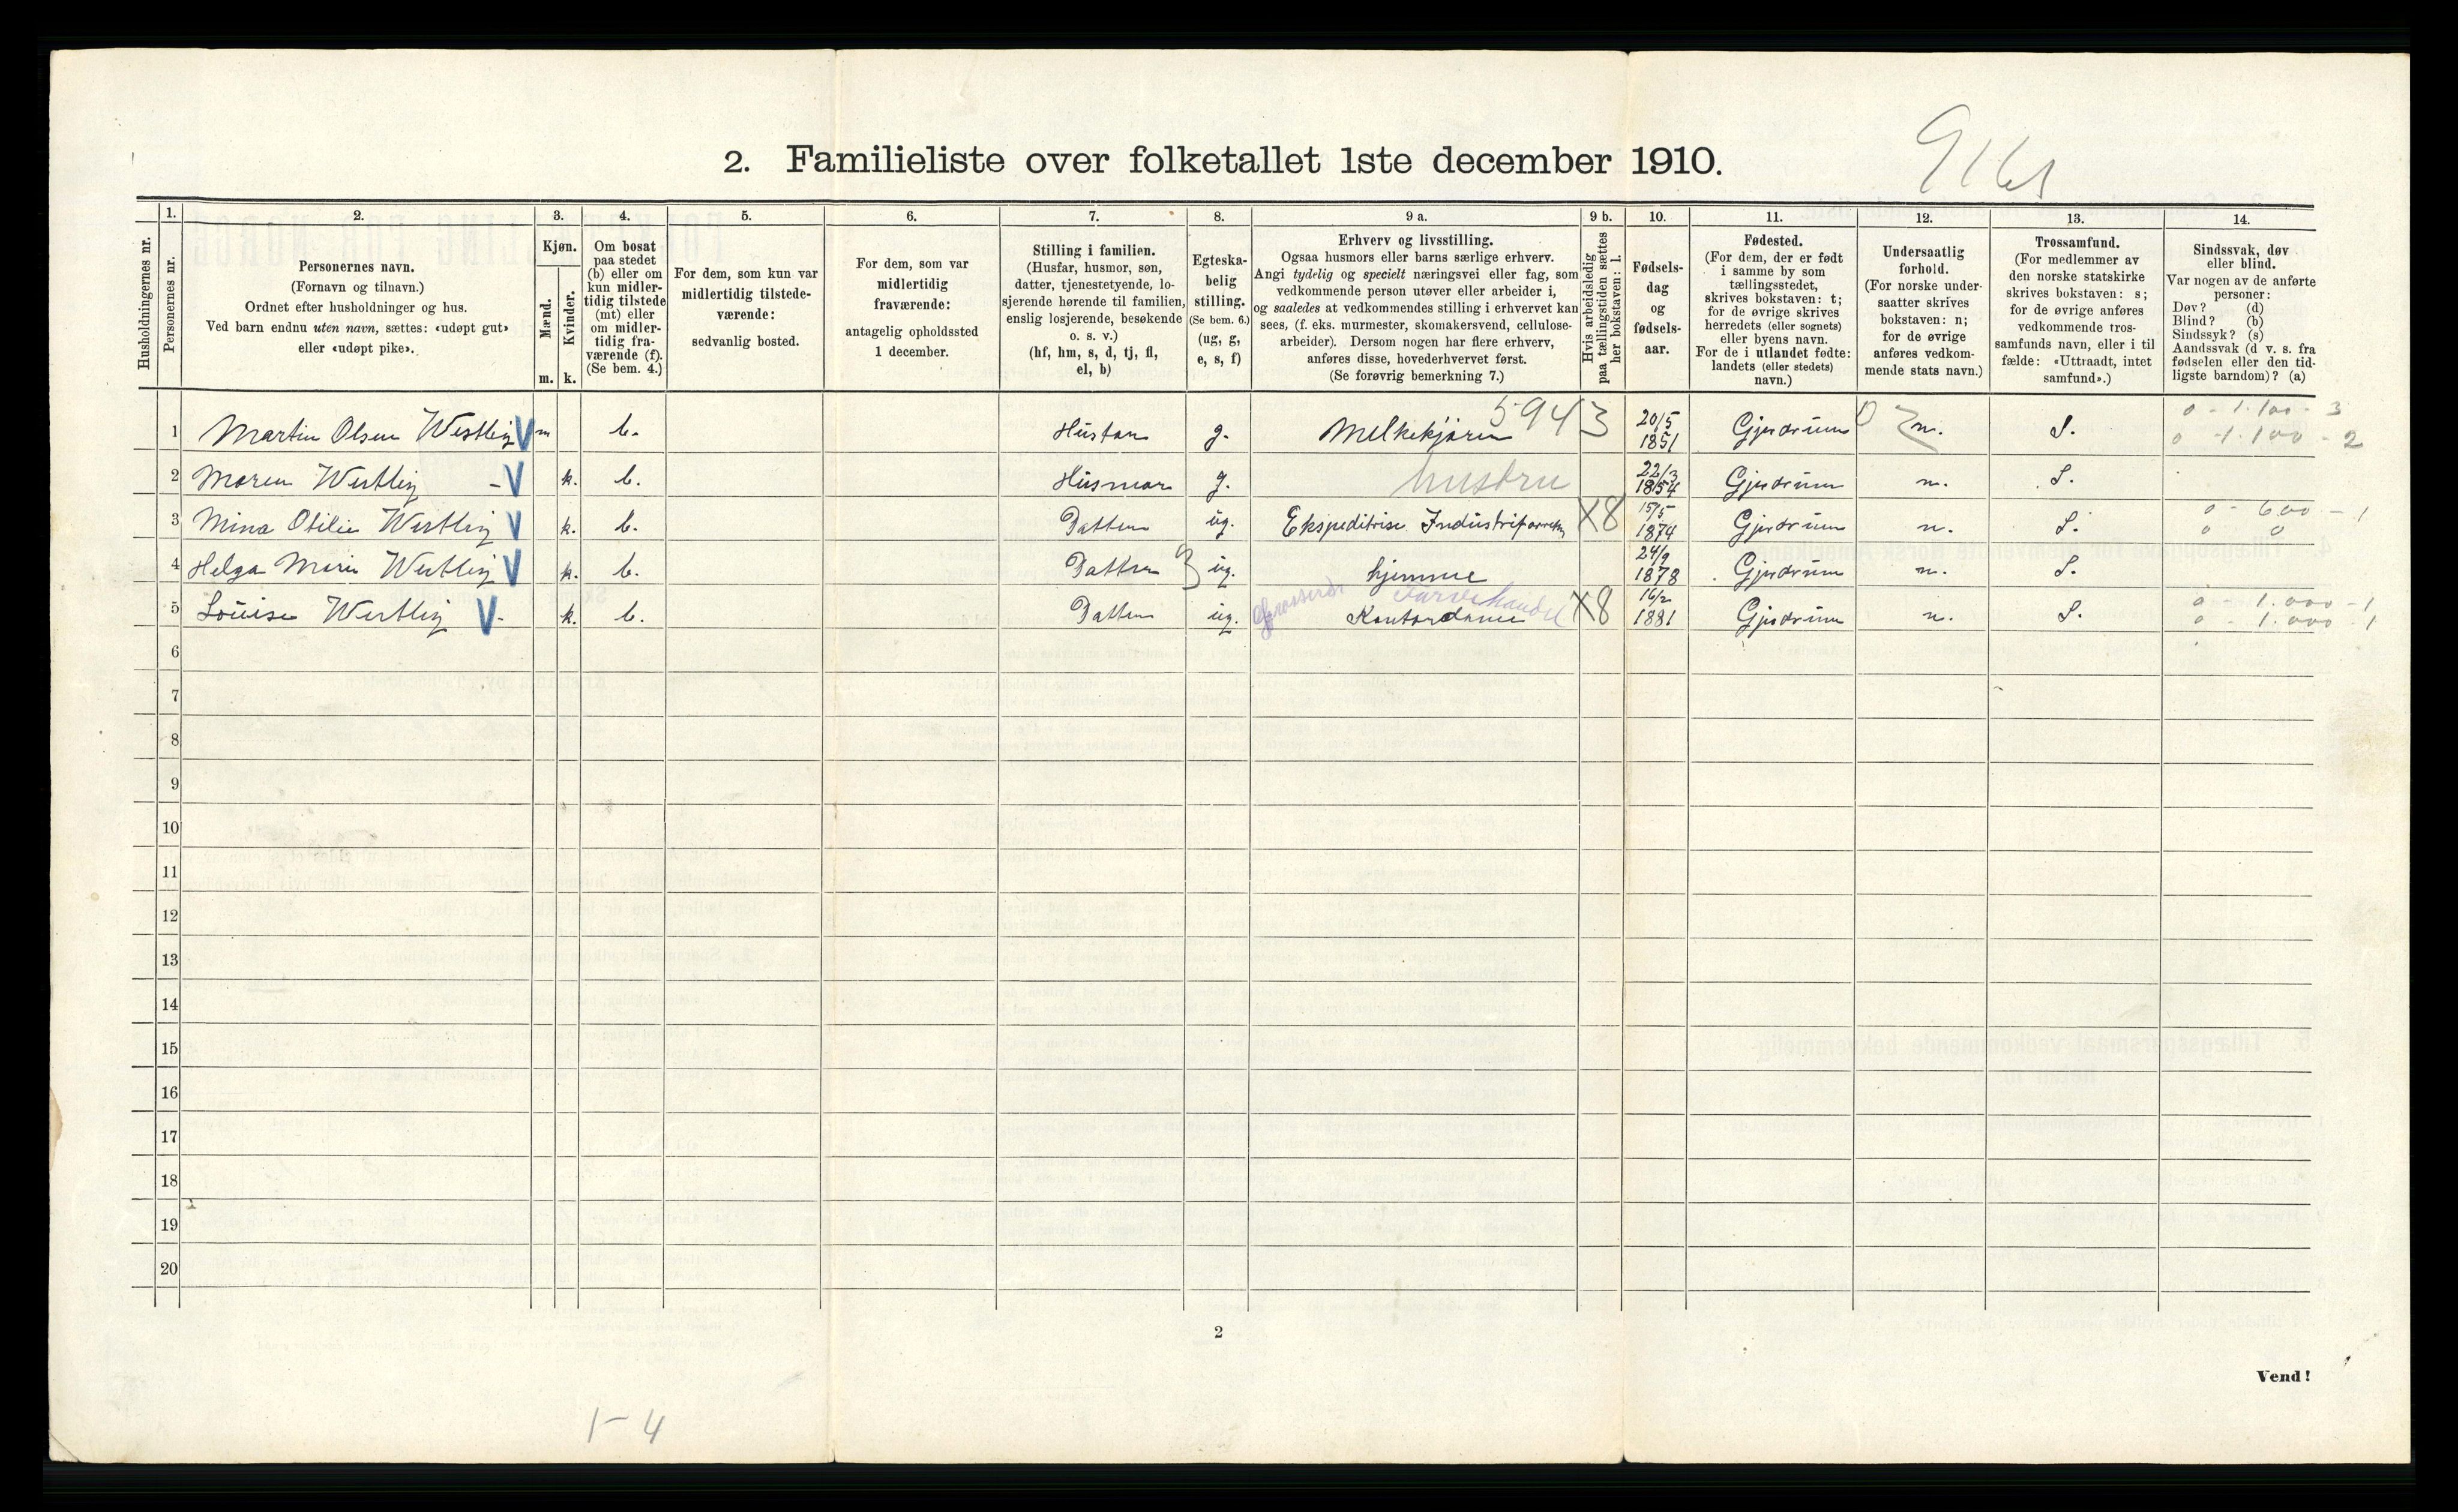 2. Familieliste over folketallet 1ste december 1910.
1. 2. 3. 4. 5. 6. 7. 8. 9 a. 9 b. 10. 11. 12. 13. 14.
Husholdningernes nr.
Personernes nr.
Personernes navn.
(Fornavn og tilnavn.)
Ordnet efter husholdninger og hus.
Ved barn endnu uten navn, sættes: «udøpt gut»
eller «udøpt pike».
Kjøn.
Mænd.
Kvinder.
m. k.
Om bosat
paa stedet
(b) eller om
kun midler-
tidig tilstede
(mt) eller
om midler-
tidig fra-
værende (f).
(Se bem. 4.)
For dem, som kun var
midlertidig tilstede-
værende:
sedvanlig bosted.
For dem, som var
midlertidig
fraværende:
antagelig opholdssted
1 december.
Stilling i familien.
(Husfar, husmor, søn,
datter, tjenestetyende, lo-
sjerende hørende til familien,
enslig losjerende, besøkende
o. s. v.)
(hf, hm, s, d, tj, fl,
el, b)
Egteska-
belig
stilling.
(Se bem. 6.)
(ug, g,
e, s, f)
Erhverv og livsstilling.
Ogsaa husmors eller barns særlige erhverv.
Angi tydelig og specielt næringsvei eller fag, som
vedkommende person utøver eller arbeider i,
og saaledes at vedkommendes stilling i erhvervet kan
sees, (f. eks. murmester, skomakersvend, cellulose-
arbeider). Dersom nogen har flere erhverv,
anføres disse, hovederhvervet først.
(Se forøvrig bemerkning 7.)
Hvis arbeidsledig
paa tællingstiden sættes
her bokstaven: l.
Fødsels-
dag
og
fødsels-
aar.
Fødested.
(For dem, der er født
i samme by som
tællingsstedet,
skrives bokstaven: t;
for de øvrige skrives
herredets (eller sognets)
eller byens navn.
For de i utlandet fødte:
landets (eller stedets)
navn.)
Undersaatlig
forhold.
(For norske under-
saatter skrives
bokstaven: n;
for de øvrige
anføres vedkom-
mende stats navn.)
Trossamfund.
(For medlemmer av
den norske statskirke
skrives bokstaven: s;
for de øvrige anføres
vedkommende tros-
samfunds navn, eller i til-
fælde: «Uttraadt, intet
samfund».)
Sindssvak, døv
eller blind.
Var nogen av de anførte
personer:
Døv? (d)
Blind? (b)
Sindssyk? (s)
Aandssvak (d v. s. fra
fødselen eller den tid-
ligste barndom)? (a)
1 Martin Olsen Westlig V m b. Husfar g. Melkekjører 594 3 20/5 1851 Gjerdrum n. S. 0 - 1.100 - 3
0 - 1.100 - 2
2 Maren Westlig - V k. b. Husmor g. hustru 22/3 1854 Gjerdrum n. S.
3 Mina Otilie Westlig V k. b. Datter ug. Ekspeditrise Industriforretn X8 15/5 1874 Gjerdrum n. S. 0 - 600 - 1
0 0
4 Helga Marie Westlig V k. b. Datter ug. hjemme 24/9 1878 Gjerdrum n. S.
5 Louise Westlig V. k. b. Datter ug. Farvehandel Kontordame X8 16/2 1881 Gjerdrum n. S. 0 - 1.000 - 1
0 - 1.000 - 1
6
7
8
9
10
11
12
13
14
15
16
17
18
19
20
2
Vend!
1-4